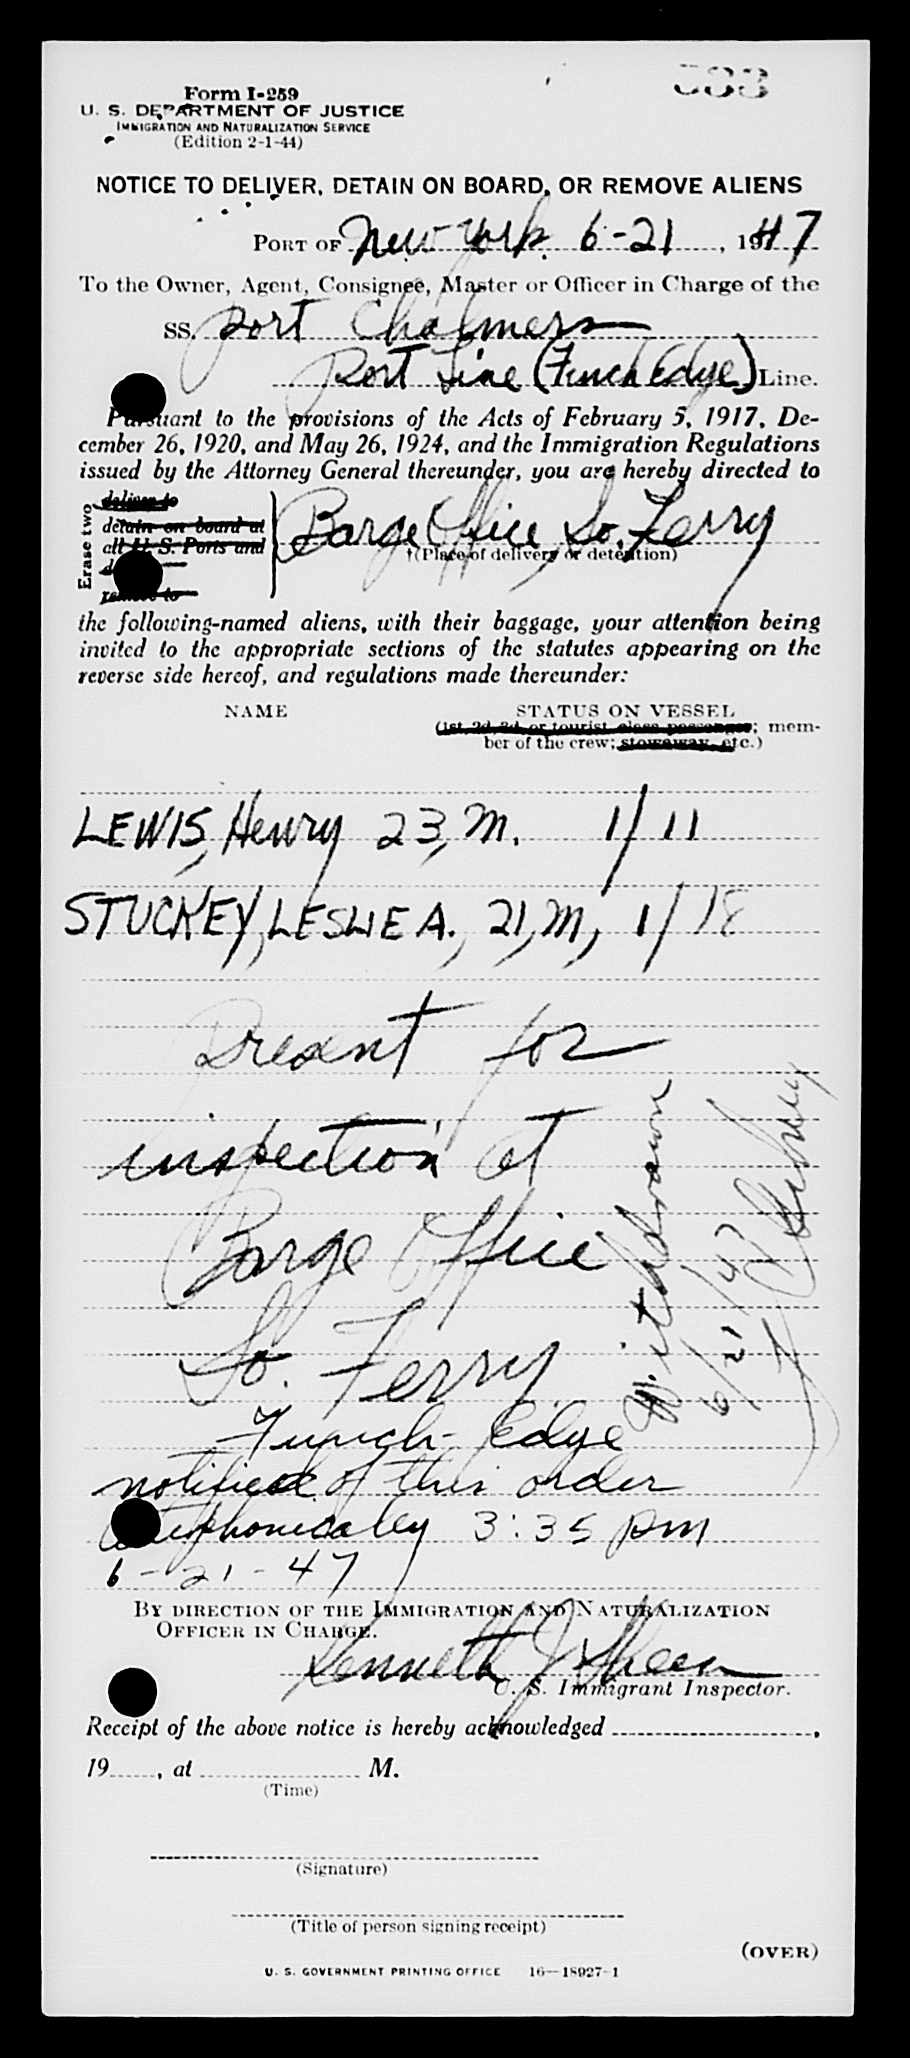 Form I-259
U. S. DEPARTMENT OF JUSTICE
IMMIGRATION AND NATURALIZATION SERVICE
(Edition 2-1-44)
NOTICE TO DELIVER, DETAIN ON BOARD, OR REMOVE ALIENS
PORT OF New York 6-21, 1947
To the Owner, Agent, Consignee, Master or Officer in Charge of the
SS. Port Chalmers
Port Line (Funch Edye) Line.
Pursuant to the provisions of the Acts of February 5, 1917, De-
cember 26, 1920, and May 26, 1924, and the Immigration Regulations
issued by the Attorney General thereunder, you are hereby directed to
Erase two
deliver to
detain on board at
all U. S. Ports and
remove to
Barge Office, So. Ferry
†(Place of delivery or detention)
the following-named aliens, with their baggage, your attention being
invited to the appropriate sections of the statutes appearing on the
reverse side hereof, and regulations made thereunder:
NAME STATUS ON VESSEL
(1st, 2d, 3d, or tourist class passenger; mem-
ber of the crew; stowaway, etc.)
LEWIS, Henry 23, M. 1/11
STUCKEY, LESLIE A., 21, M, 1/18
Present for
inspection at
Barge Office
So. Ferry
Withdrawn
6/21/47
Funch-Edye
notified of this order
telephonically 3:35 pm
6-21-47
BY DIRECTION OF THE IMMIGRATION AND NATURALIZATION
OFFICER IN CHARGE.
Kenneth J. Sheen
U. S. Immigrant Inspector.
Receipt of the above notice is hereby acknowledged ,
19 , at M.
(Time)
(Signature)
(Title of person signing receipt)
(OVER)
U. S. GOVERNMENT PRINTING OFFICE 16—18927-1